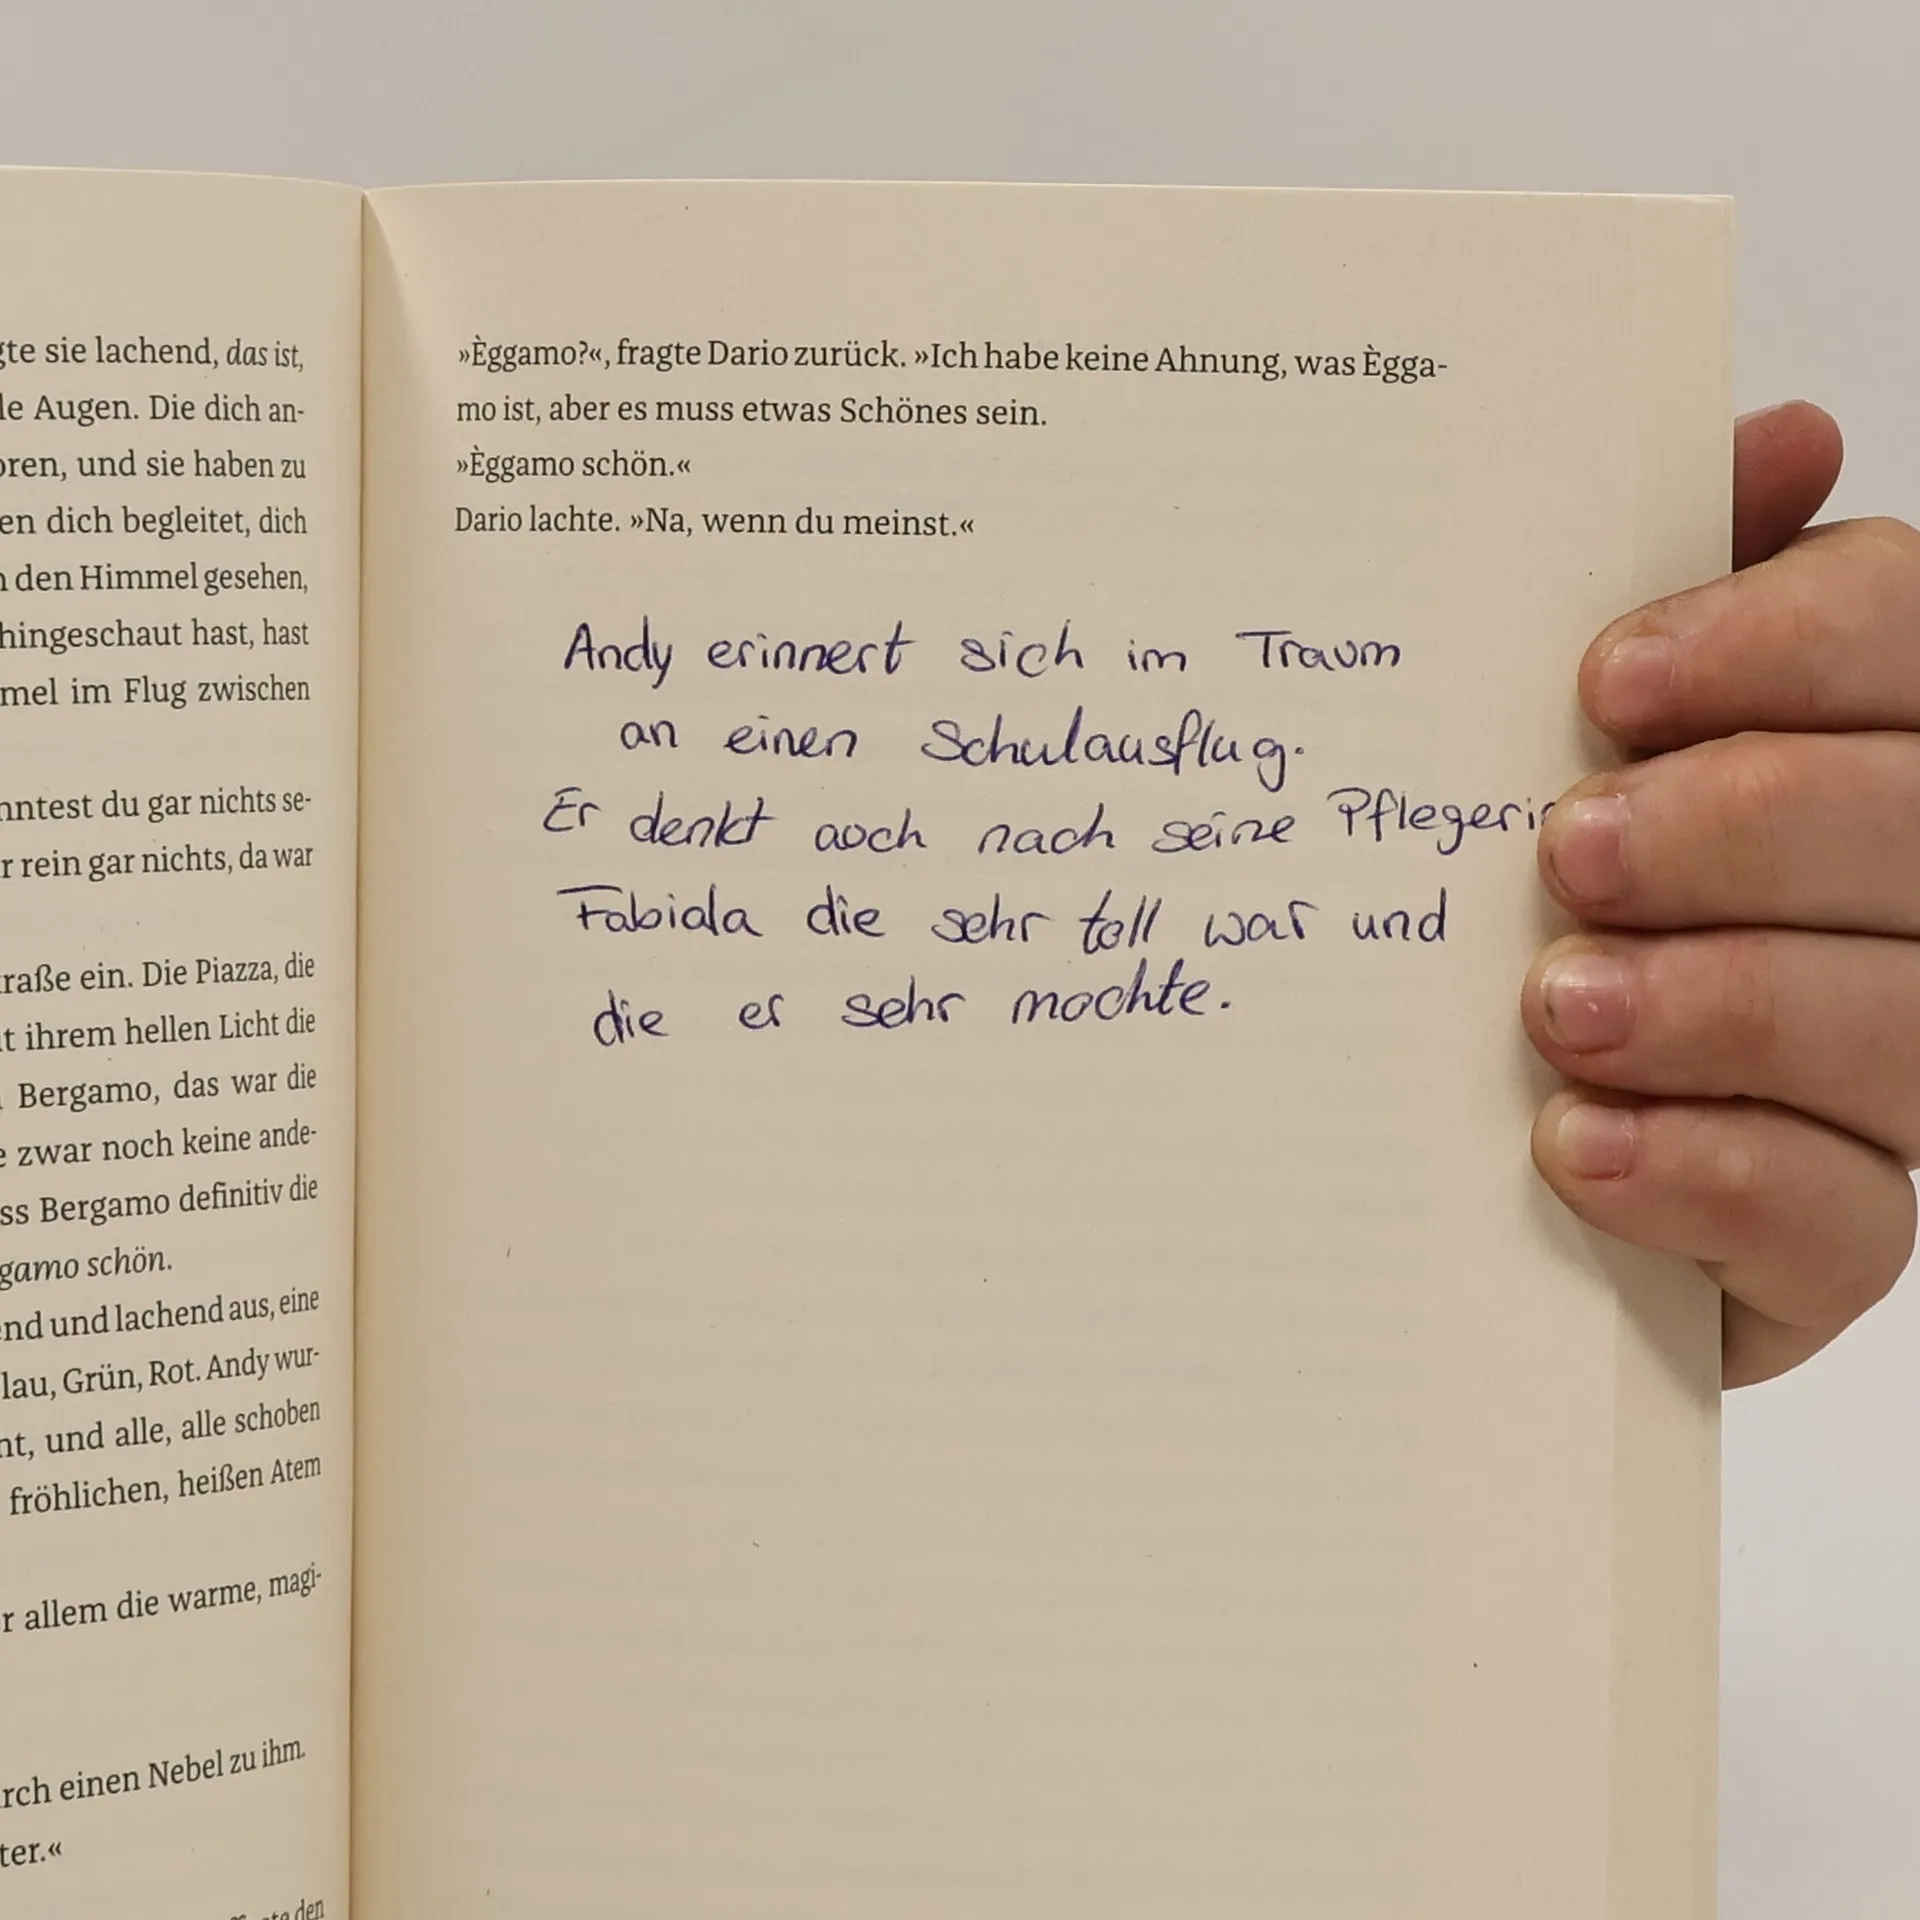 gte sie lachend, das ist,
le Augen. Die dich an-
oren, und sie haben zu
en dich begleitet, dich
den Himmel gesehen,
hingeschaut hast, hast
mel im Flug zwischen
nntest du gar nichts se-
r rein gar nichts, da war
raße ein. Die Piazza, die
t ihrem hellen Licht die
Bergamo, das war die
e zwar noch keine ande-
ss Bergamo definitiv die
gamo schön.
end und lachend aus, eine
lau, Grün, Rot. Andy wur-
ht, und alle, alle schoben
fröhlichen, heißen Atem
r allem die warme, magi-
rch einen Nebel zu ihm.
ter.«
den
»Èggamo?«, fragte Dario zurück. »Ich habe keine Ahnung, was Ègga-
mo ist, aber es muss etwas Schönes sein.
»Èggamo schön.«
Dario lachte. »Na, wenn du meinst.«
Andy erinnert sich im Traum
an einen Schulausflug.
Er denkt auch nach seine Pflegerin
Fabiola die sehr toll war und
die er sehr mochte.